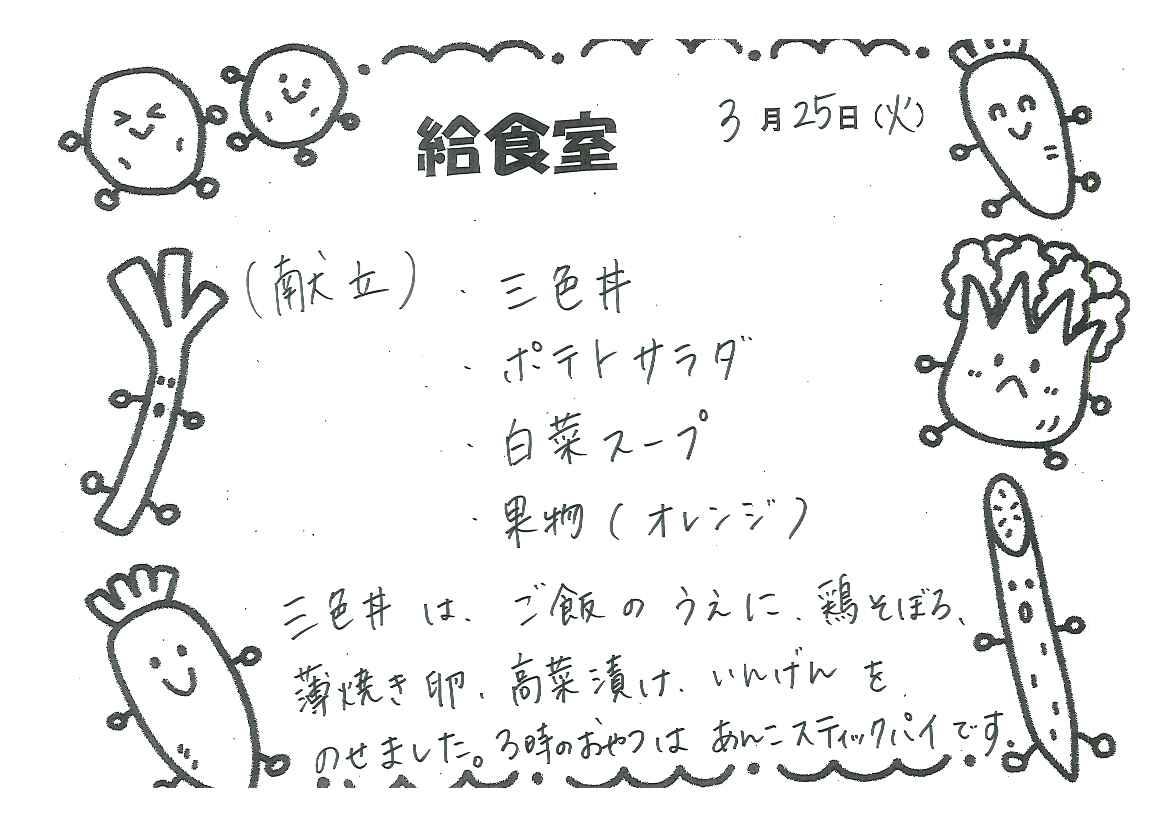 給食室
3月25日(火)
(献立)・三色丼
・ポテトサラダ
・白菜スープ
・果物(オレンジ)
三色丼は、ご飯のうえに、鶏そぼろ、
薄焼き卵、高菜漬け、いんげんを
のせました。3時のおやつはあんこスティックパイです。